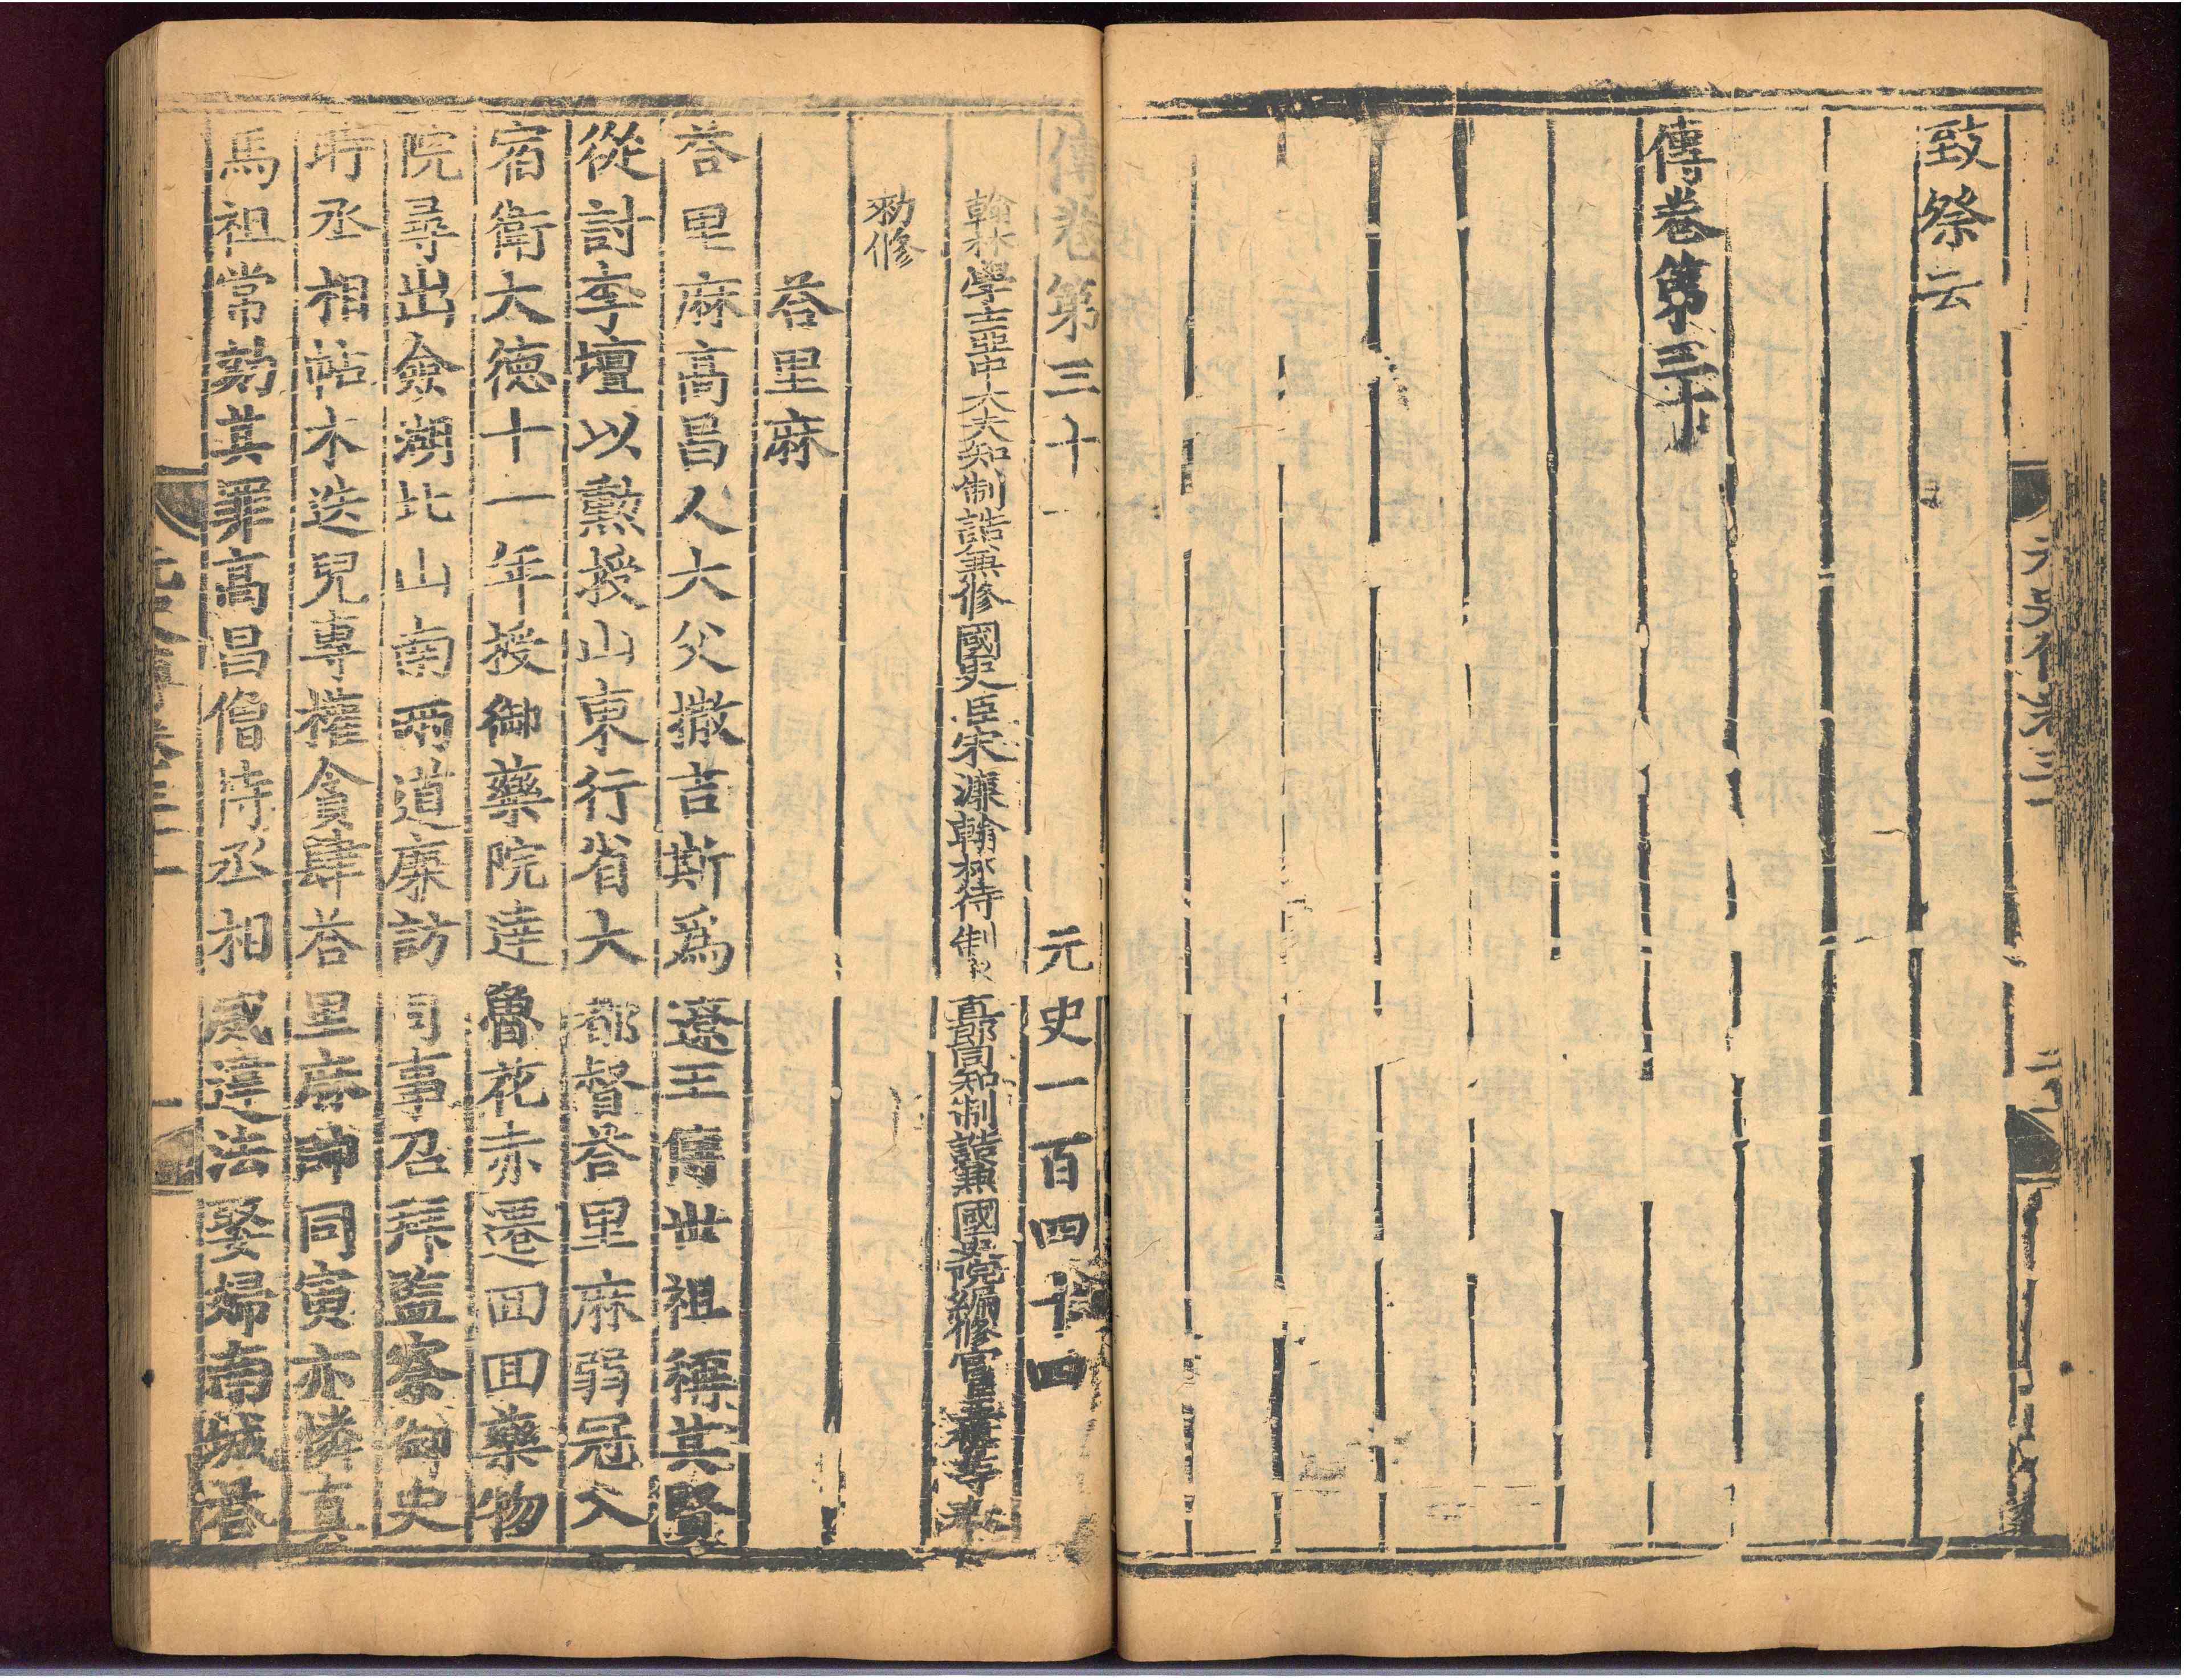 致祭云
傳卷第三十
傳卷第三十一 元史一百四十四
翰林學士亞中大夫知制誥兼修國史臣宋濂翰林待制 直郎同知制誥兼國史院編修官臣王褘等奉
勑修
荅里麻
荅里麻高昌人大父撒吉斯爲遼王傅世祖稱其賢
從討李璮以勲授山東行省大都督荅里麻弱冠入
宿衛大德十一年授御藥院達魯花赤遷回回藥物
院尋出僉湖北山南兩道廉訪司事召拜監察御史
時丞相帖木迭兒專權貪肆荅里麻帥同寅亦憐真
馬祖常劾其罪高昌僧恃丞相威違法娶婦南城荅